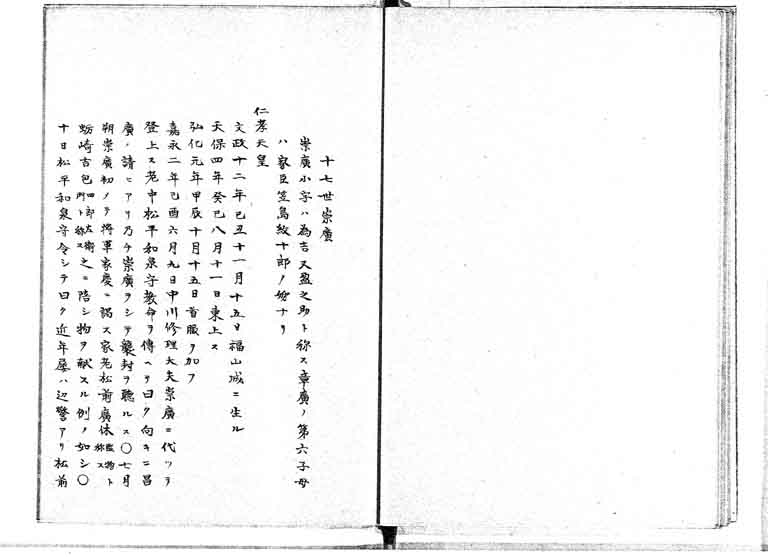 十七世崇廣
崇廣小字ハ為吉又盈之助ト称ス章廣ノ第六子母
ハ家臣笠島紋十郎ノ女ナリ
仁孝天皇
文政十二年己丑十一月十五日福山城ニ生ル
天保四年癸巳八月十一日東上ス
弘化元年甲辰十月十五日首服ヲ加フ
嘉永二年己酉六月九日中川修理大夫崇廣ニ代ツテ
登上ス老中松平和泉守教命ヲ傳ヘテ曰ク向キニ昌
廣ノ請ニアリ乃チ崇廣ヲシテ襲封ヲ聴ルス〇七月
朔崇廣初メテ将軍家慶ニ謁ス家老松前廣休監物ト称ス
蛎崎吉包四郎左衛門ト称ス之ニ陪シ物ヲ献スル例ノ如シ〇
十日松平和泉守令シテ曰ク近年屡ハ辺警アリ松前